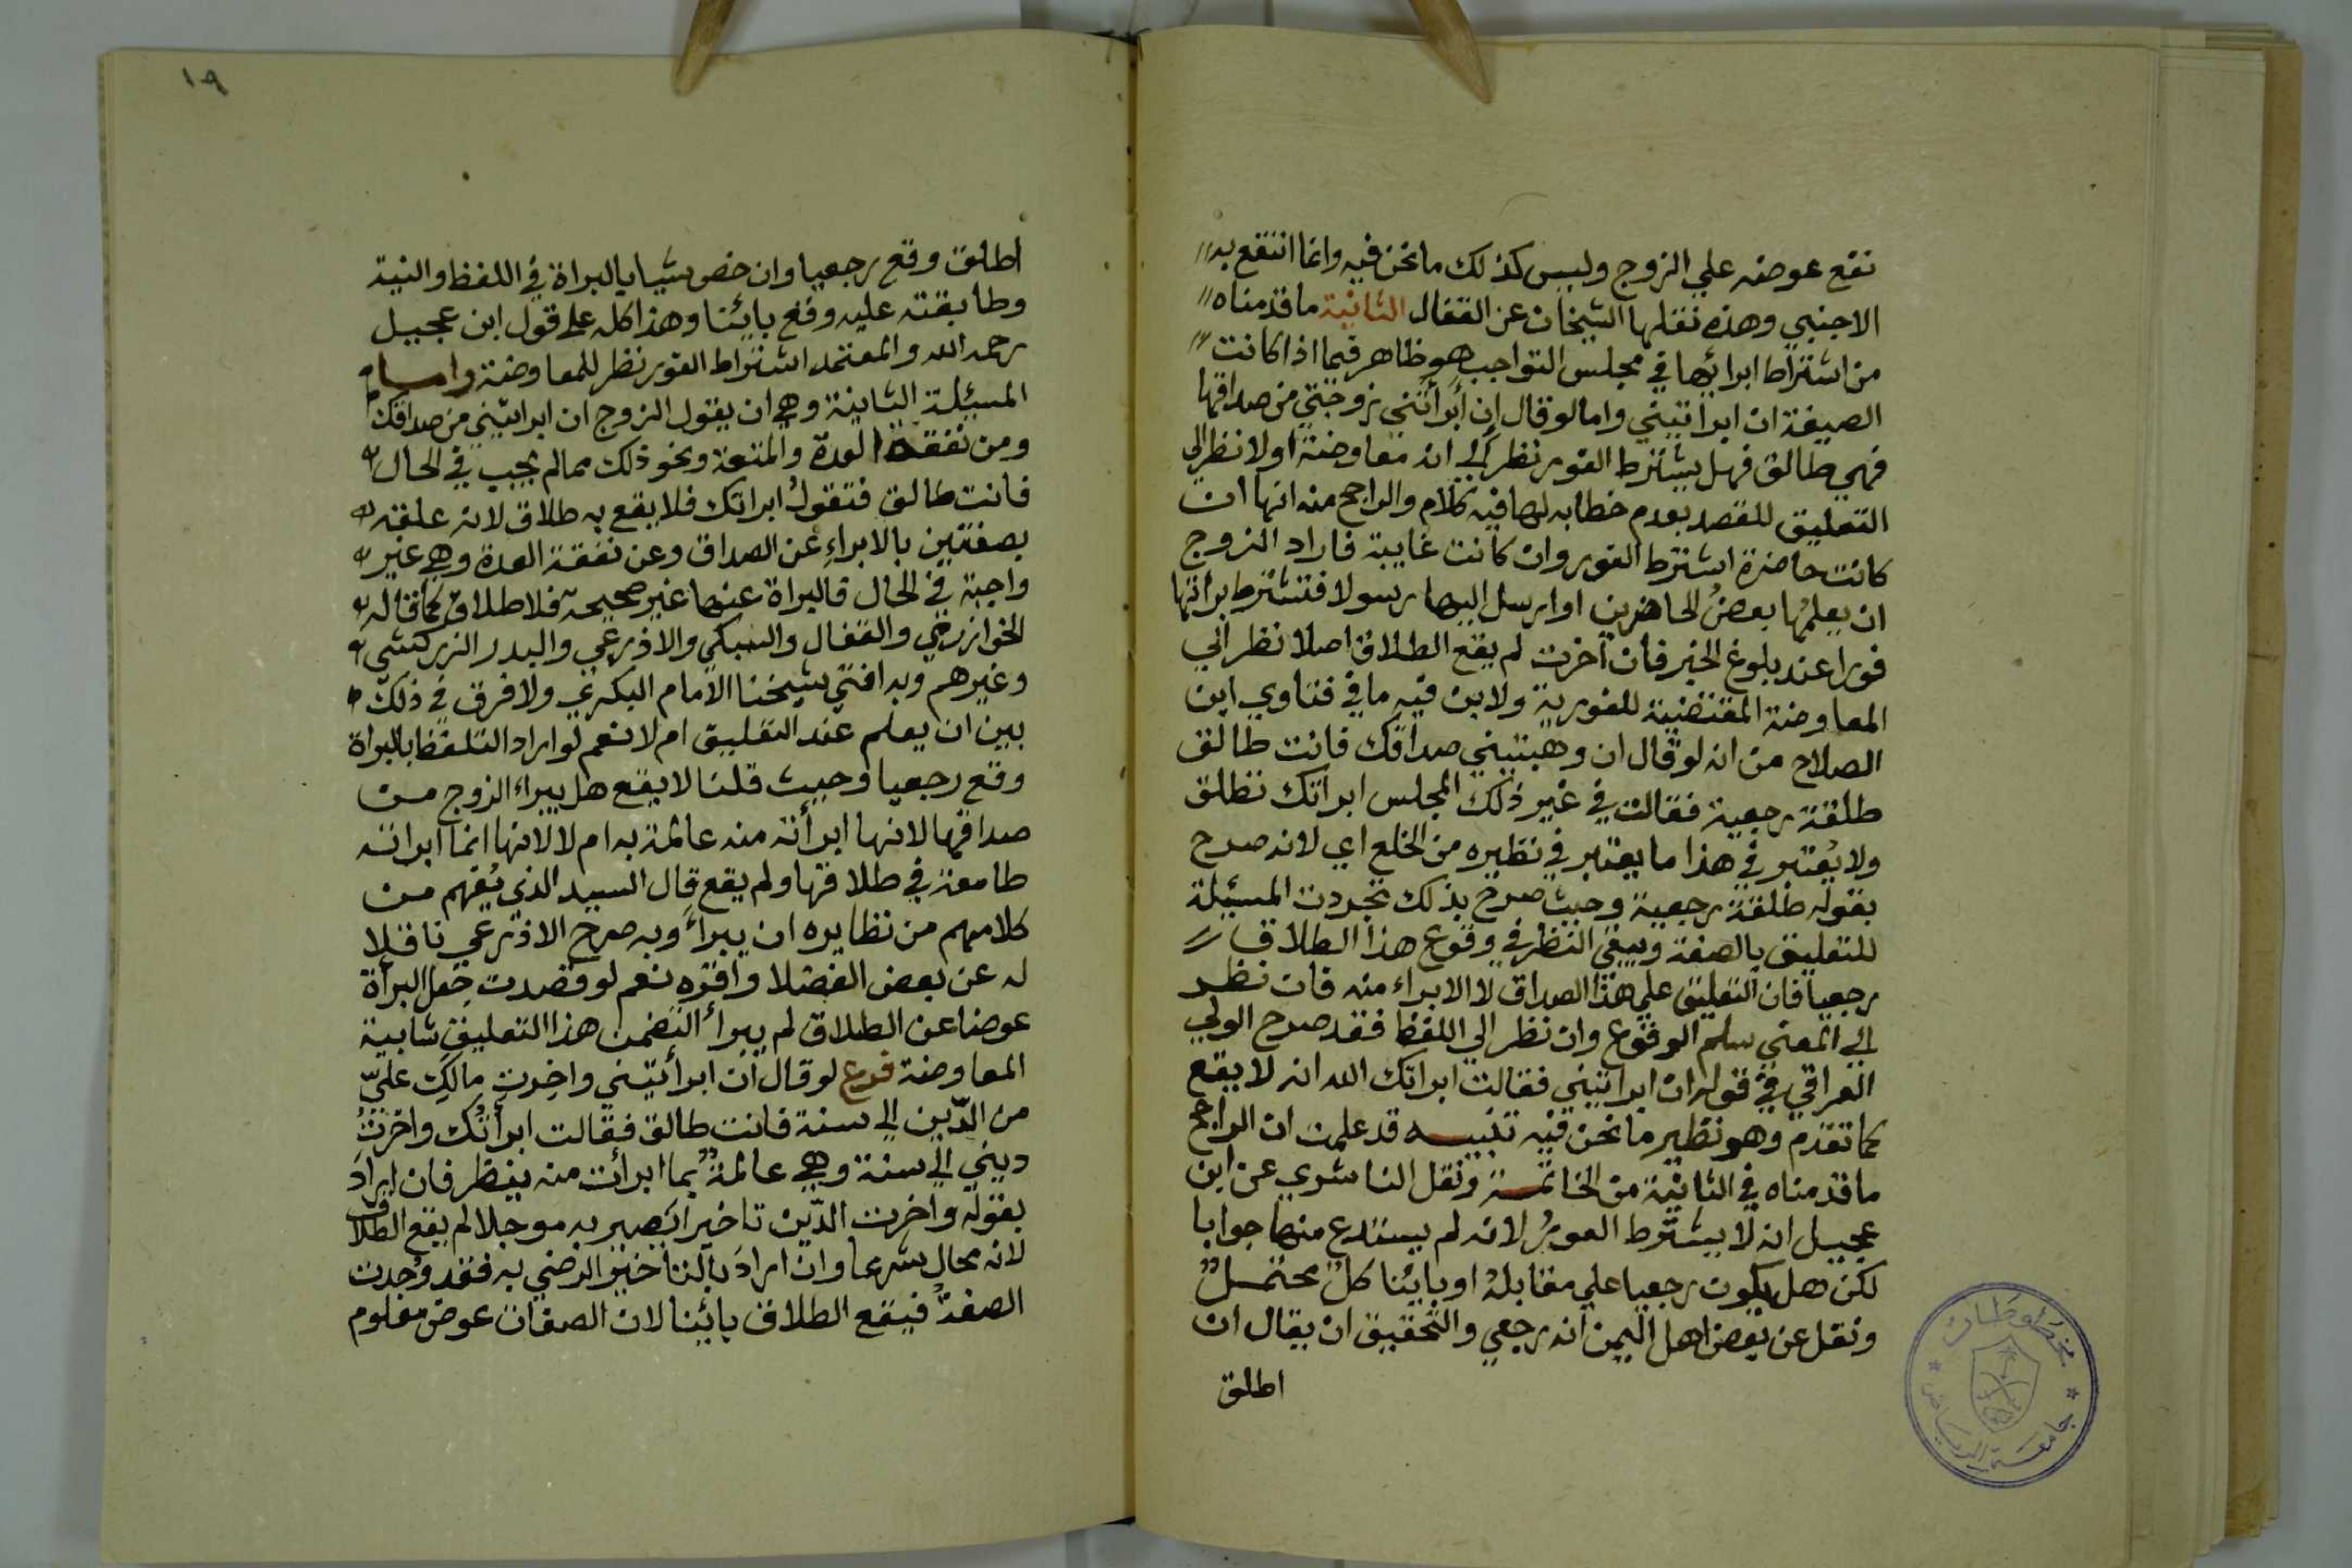 نفع عوضه علي الزوج وليس كذلك ما نحن فيه وانما انتفع به
الاجنبي وهذه نقلها الشيخان عن القفال الثانية ما قدمناه
من اشتراط ابرائها في مجلس التواجب هو ظاهر فيما اذا كانت
الصيغة ان ابراتيني واما لو قال إن أبرأتني زوجتي من صداقها
فهي طالق فهل يشترط الفور نظر إلى انه معاوضة اولا نظر الي
التعليق للقصد بعدم خطابه لها فيه كلام والراجح منه انها ان
كانت حاضرة اشترط الفور وان كانت غايبة فاراد الزوج
ان يعلمها بعضُ الحاضرين او ارسل اليها رسولا فتشترط براتها
فورا عند بلوغ الخبر فان أخرت لم يقع الطلاق اصلا نظر الي
المعاوضة المقتضية للفورية ولا بن فيه ما في فتاوي ابن
الصلاح من انه لو قال ان وهبتيني صداقك فانت طالق
طلقة رجعية فقالت في غير ذلك المجلس ابراتك تطلق
ولا يُعتبر في هذا ما يعتبر في نظيره من الخلع اي لانه صرح
بقوله طلقة رجعية وحيث صرح بذلك تجردت المسيلة
للتعليق بالصفة ويبقي النظر في وقوع هذا الطلاق
رجعيا فان التعليق علي هذا الصداق لا الابراء منه فان نظر
إلي المعني سلم الوقوع وان نظر الي اللفظ فقد صرح الولي
العراقي في قوله ان ابراتيني فقالت ابراتك الله انه لا يقع
كما تقدم وهو نظير ما نحن فيه تنبيه قد علمت ان الراجح
ما قدمناه في الثانية من الخاتمة ونقل الناشري عن ابن
عجيل انه لا يشترط الفورُ لانه لم يستدع منها جوابا
لكن هل يكون رجعيا علي مقابلة او بايُنا كلٌ محتملٌ
ونقل عن بعض اهل اليمن انه رجعي والتحقيق ان يقال ان
اطلق
١٩
اطلق وقع رجعيا وان خص شيا بالبراة في اللفظ والنية
وطابقته عليه وقع بايئنا وهذا كله على قول ابن عجيل
رحمه الله والمعتمد اشتراط الفور نظر للمعاوضة واما
المسيلة الثانية وهي ان يقول الزوج ان ابراتيني من صداقك
ومن نفقة العدة والمتعة ونحو ذلك مما لم يجب في الحال
فانت طالق فتقولُ ابراتك فلا يقع به طلاق لانه علقه
بصفتين بالابراءِ عن الصداق وعن نفقة العدة وهي غير
واجبة في الحال فالبراة عنها غير صحيحة فلا طلاق كما قاله
الخوارزمي والقفال والسبكي والاذرعي والبدر الزركشي
وغيرهم وبه افتي شيخنا الامام البكري ولا فرق في ذلك
بين ان يعلم عند التعليق ام لا نعم لو اراد التلفظ بالبراة
وقع رجعيا وحيث قلنا لا يقع هل يبراء الزوج من
صداقها لانها ابرأته منه عالمة به ام لا لانها انما ابراته
طامعة في طلاقها ولم يقع قال السيد الذي يُفهم من
كلامهم من نظايره ان يبرأَ وبه صرح الاذرعي ناقلا
له عن بعض الفضلا واقره نعم لو قصدت جعل البرأة
عوضا عن الطلاق لم يبرأ التضمن هذا التعليق شايبة
المعاوضة فرع لو قال ان ابرأتيني واخرتِ مالكِ عليّ
من الدّين إلى سنة فانت طالق فقالت ابرأتُك واخرتُ
ديني إلي سنة وهي عالمةٌ بما ابرأت منه ينظر فان ارادَ
بقوله واخرت الدّين تاخيرا يصير به موجلا لم يقع الطلاق
لانه محال شرعا وان ارادَ بالتاخير الرضي به فقد وُجدت
الصفةُ فيقع الطلاق بائينا لان الصفات عوض معلوم
مخطوطات
جامعة الرياض